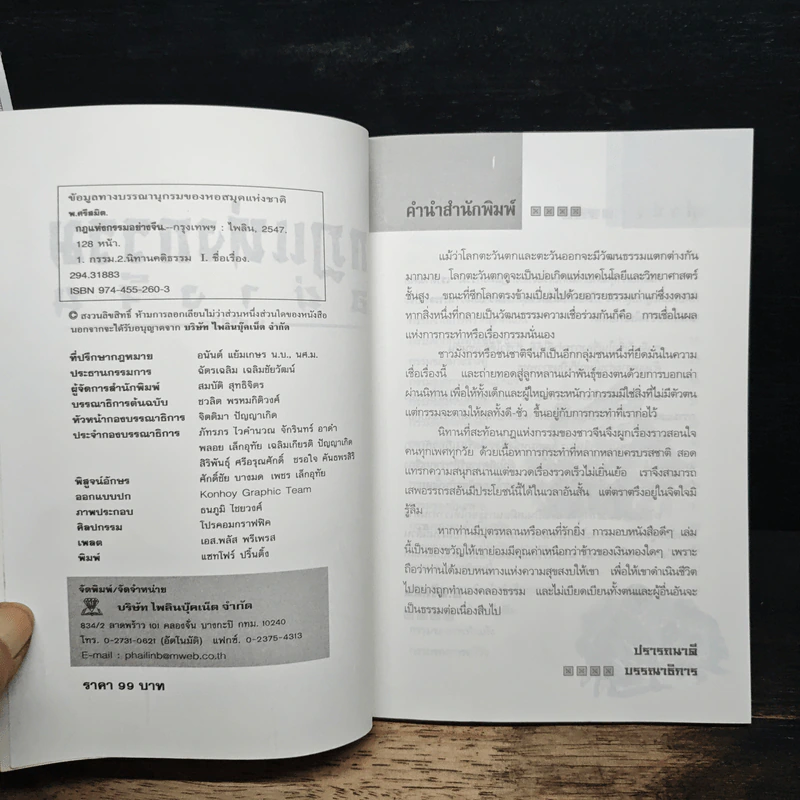 ข้อมูลทางบรรณานุกรมของหอสมุดแห่งชาติ
พ.ศรีสมิต.
กฎแห่งกรรมอย่างจีน.--กรุงเทพฯ : ไพลิน, 2547.
128 หน้า.
1. กรรม.2.นิทานคติธรรม I. ชื่อเรื่อง.
294.31883
ISBN 974-455-260-3
© สงวนลิขสิทธิ์ ห้ามการลอกเลียนไม่ว่าส่วนหนึ่งส่วนใดของหนังสือ
นอกจากจะได้รับอนุญาตจาก บริษัท ไพลินบุ๊คเน็ต จำกัด
ที่ปรึกษากฎหมาย อนันต์ แย้มเกษร น.บ., นศ.ม.
ประธานกรรมการ ฉัตรเฉลิม เฉลิมชัยวัฒน์
ผู้จัดการสำนักพิมพ์ สมบัติ สุทธิจิตร
บรรณาธิการต้นฉบับ ชวลิต พรหมกิติวงศ์
หัวหน้ากองบรรณาธิการ จิตติมา ปัญญาเกิด
ประจำกองบรรณาธิการ ภัทรภร ไวคำนวณ จักรินทร์ อาดำ
พลอย เล็กอุทัย เฉลิมเกียรติ ปัญญาเกิด
สิริพันธุ์ ศรีอรุณศักดิ์ ชรอใจ คันธพรสิริ
พิสูจน์อักษร ศักดิ์ชัย บางมด เพชร เล็กอุทัย
ออกแบบปก Konhoy Graphic Team
ภาพประกอบ ธนภูมิ ไชยวงศ์
ศิลปกรรม โปรคอมกราฟฟิค
เพลต เอส.พลัส พรีเพรส
พิมพ์ แซทโฟร์ ปริ้นติ้ง
จัดพิมพ์/จัดจำหน่าย
บริษัท ไพลินบุ๊คเน็ต จำกัด
834/2 ลาดพร้าว 101 คลองจั่น บางกะปิ กทม. 10240
โทร. 0-2731-0621 (อัตโนมัติ) แฟกซ์. 0-2375-4313
E-mail : phailinb@mweb.co.th
ราคา 99 บาท
คำนำสำนักพิมพ์
แม้ว่าโลกตะวันตกและตะวันออกจะมีวัฒนธรรมแตกต่างกัน
มากมาย โลกตะวันตกดูจะเป็นบ่อเกิดแห่งเทคโนโลยีและวิทยาศาสตร์
ชั้นสูง ขณะที่ซีกโลกตรงข้ามเปี่ยมไปด้วยอารยธรรมเก่าแก่ซึ่งงดงาม
หากสิ่งหนึ่งที่กลายเป็นวัฒนธรรมความเชื่อร่วมกันก็คือ การเชื่อในผล
แห่งการกระทำหรือเรื่องกรรมนั่นเอง
ชาวมังกรหรือชนชาติจีนก็เป็นอีกกลุ่มชนหนึ่งที่ยึดมั่นในความ
เชื่อเรื่องนี้ และถ่ายทอดสู่ลูกหลานเผ่าพันธุ์ของตนด้วยการบอกเล่า
ผ่านนิทาน เพื่อให้ทั้งเด็กและผู้ใหญ่ตระหนักว่ากรรมมิใช่สิ่งที่ไม่มีตัวตน
แต่กรรมจะตามให้ผลทั้งดี-ชั่ว ขึ้นอยู่กับการกระทำที่เราก่อไว้
นิทานที่สะท้อนกฎแห่งกรรมของชาวจีนจึงผูกเรื่องราวสอนใจ
คนทุกเพศทุกวัย ด้วยเนื้อหาการกระทำที่หลากหลายครบรสชาติ สอด
แทรกความสนุกสนานแต่ขมวดเรื่องรวดเร็วไม่เยิ่นเย้อ เราจึงสามารถ
เสพอรรถรสอันมีประโยชน์นี้ได้ในเวลาอันสั้น แต่ตราตรึงอยู่ในจิตใจมิ
รู้ลืม
หากท่านมีบุตรหลานหรือคนที่รักยิ่ง การมอบหนังสือดีๆ เล่ม
นี้เป็นของขวัญให้เขาย่อมมีคุณค่าเหนือกว่าข้าวของเงินทองใดๆ เพราะ
ถือว่าท่านได้มอบหนทางแห่งความสุขสงบให้เขา เพื่อให้เขาดำเนินชีวิต
ไปอย่างถูกทำนองคลองธรรม และไม่เบียดเบียนทั้งตนและผู้อื่นอันจะ
เป็นธรรมต่อเนื่องสืบไป
ปรารถนาดี
บรรณาธิการ